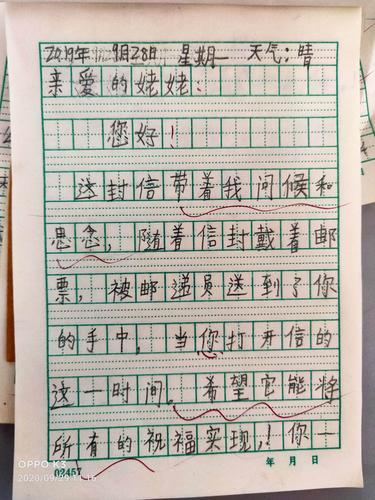 2019年9月28日 星期一 天气:晴
亲爱的姥姥:
您好!
这封信带着我问候和
思念,随着信封戴着邮
票,被邮递员送到了你
的手中,当你打开信的
这一时间。希望它能将
所有的祝福实现,!你一
OPPO K3
2020/09/29 11:16
02457
年 月 日